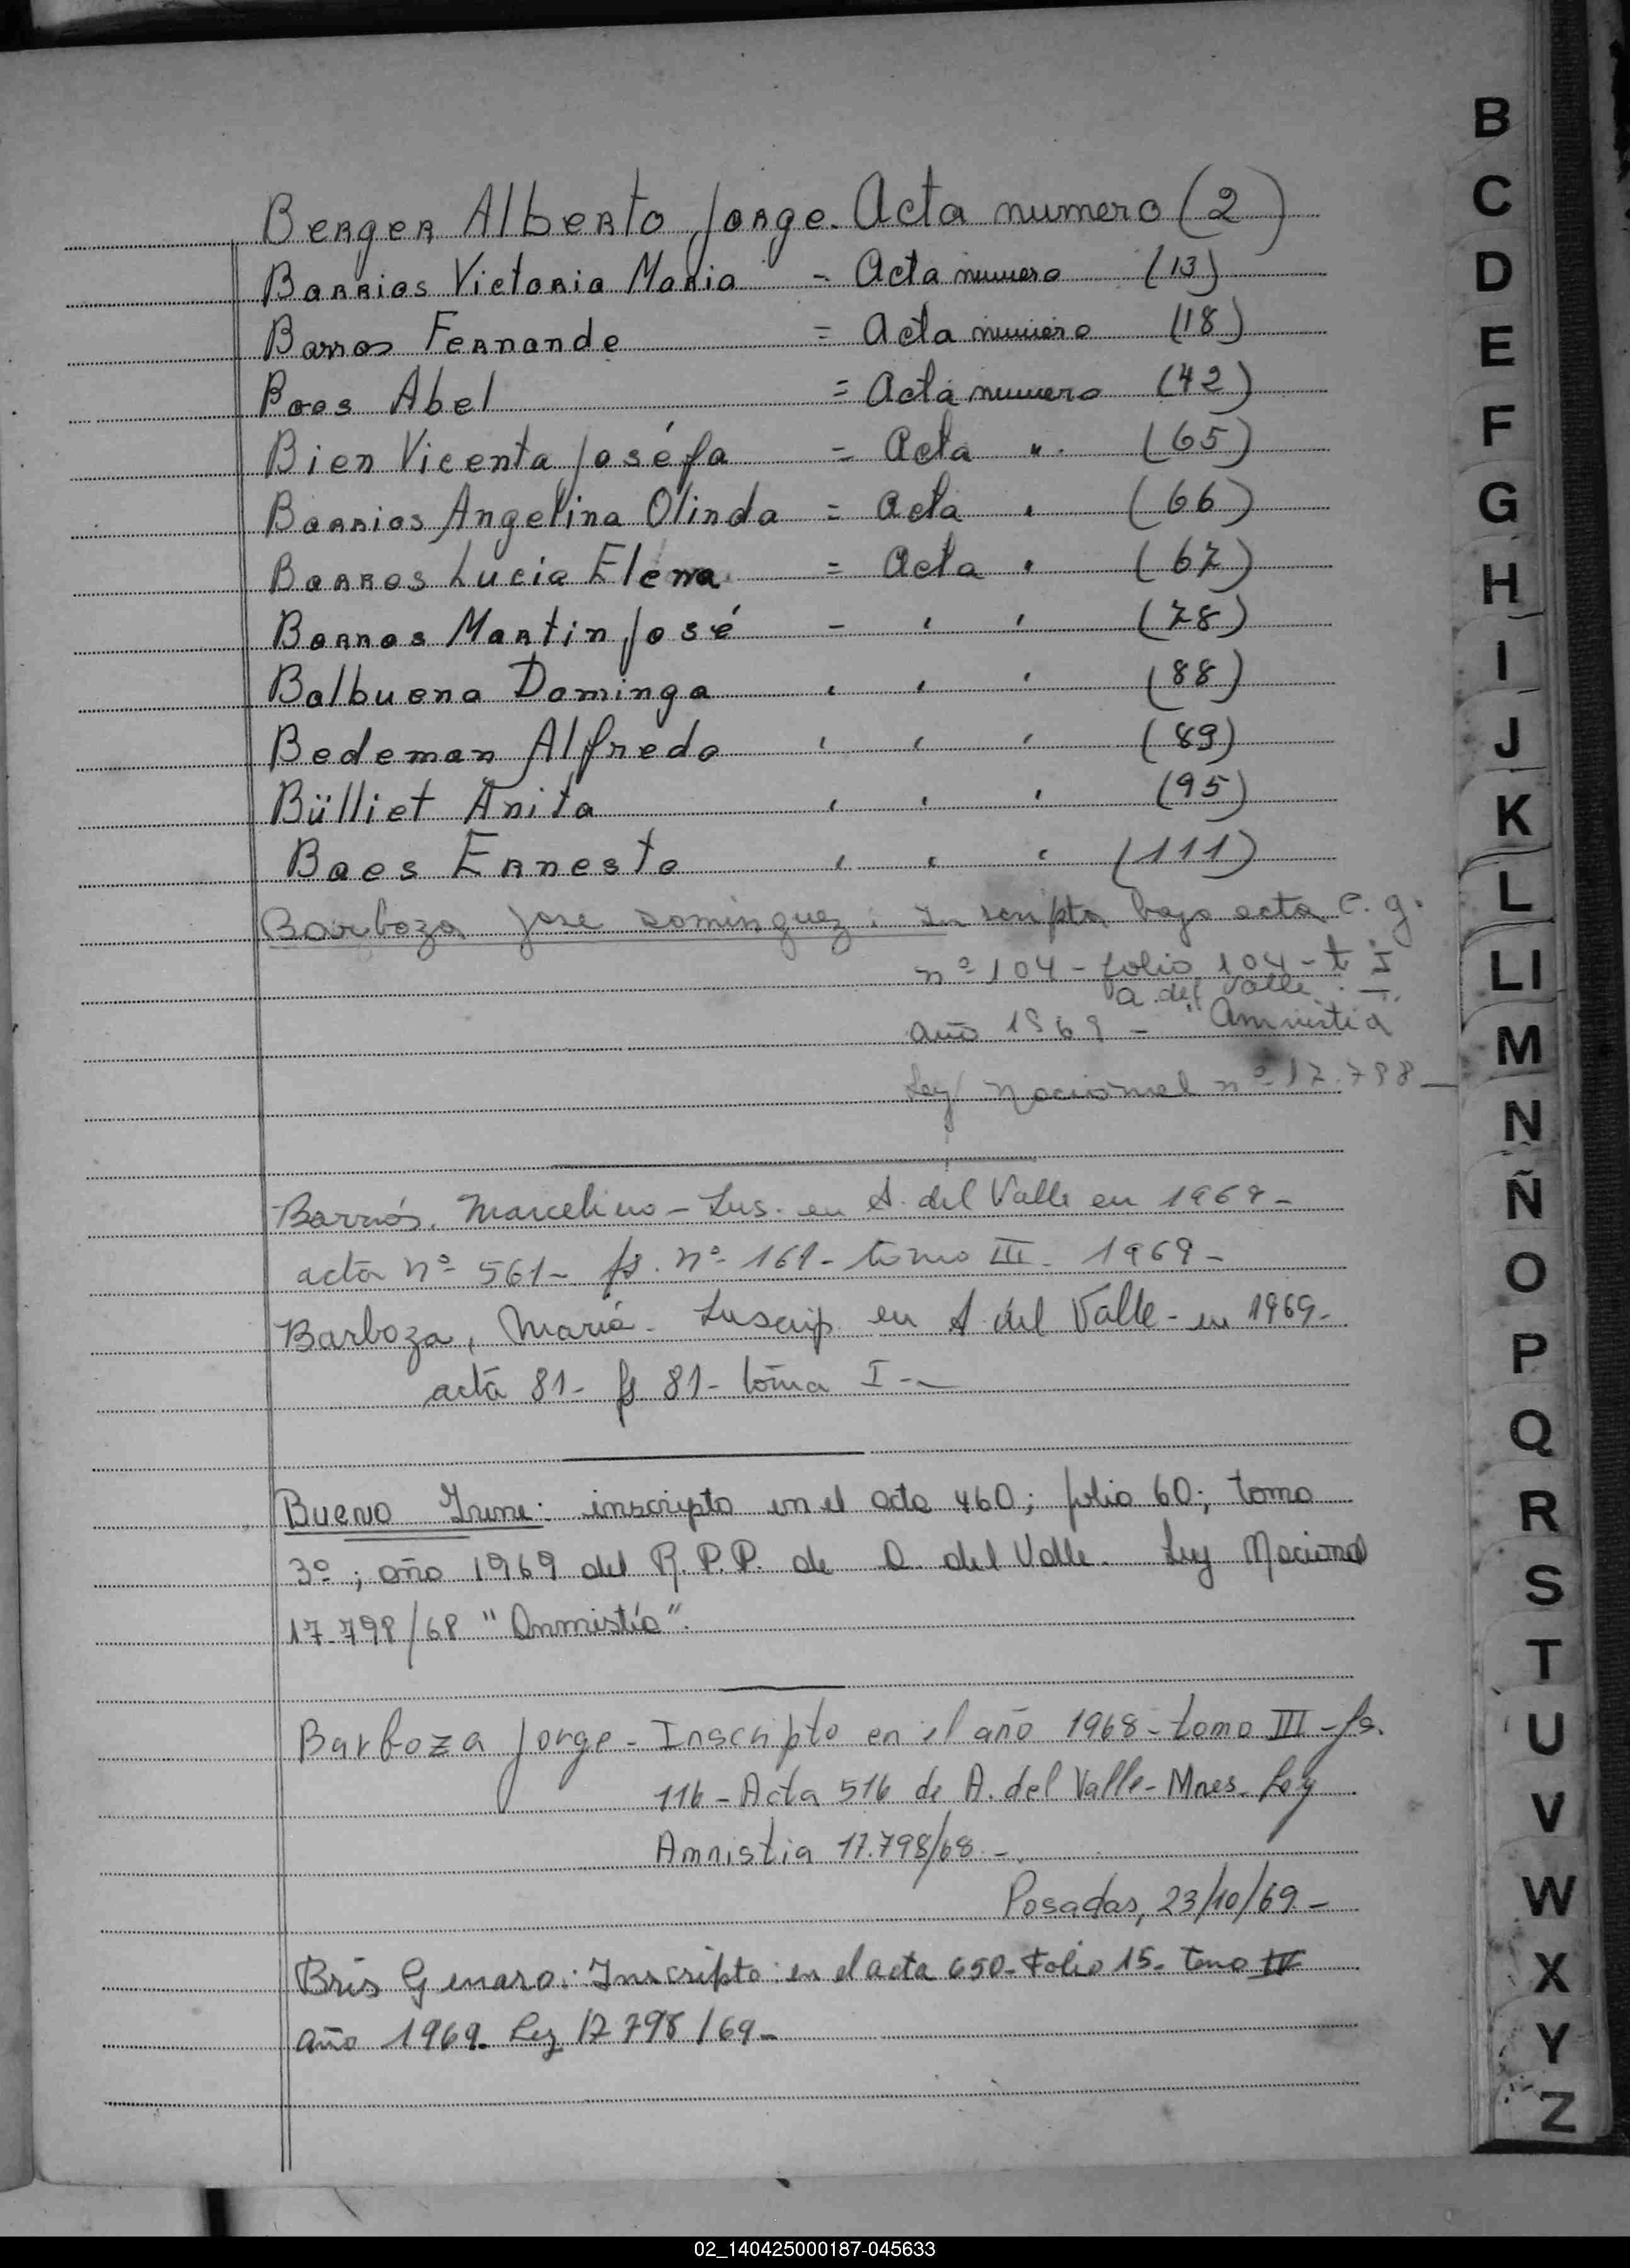 Berger Alberto Jorge. Acta numero (2)
Barrios Victoria Maria - Acta numero (13)
Barros Fernando = Acta numero (18)
Baes Abel = Acta numero (42)
Bien Vicenta Joséfa = Acta " (65)
Barrios Angelina Olinda = Acta " (66)
Barros Lucia Elena = Acta " (67)
Barros Martin José - " " (78)
Balbuena Dominga " " " (88)
Bedeman Alfredo " " " (89)
Bülliet Anita " " " (95)
Baes Ernesto " " " (111)
Barboza Jose Dominguez: Inscripto bajo acta c. g.
nº 104 - folio 104 - t I
a. del Valle.
año 1969 - "Amnistia"
Ley Nacional nº 17.798 -
Barrios, Marcelino - Ins. en A. del Valle en 1969 -
acta nº 561 - fs. nº 161 - tomo III - 1969 -
Barboza, Maria - Inscrip. en A. del Valle - en 1969 -
acta 81 - fs 81 - tomo I - -
Bueno Irene: inscripta en el acta 460; folio 60; tomo
3º; año 1969 del R.P.P. de A. del Valle. Ley Nacional
17.798/68 "Anmistía".
Barboza Jorge - Inscripto en el año 1968 - tomo III - fs.
116 - Acta 516 de A. del Valle - Mnes. Ley
Amnistia 17.798/68 -
Posadas, 23/10/69 -
Bris Genaro: Inscripto: en el acta 650 - Folio 15 - Tomo IV
año 1969. Ley 17798/69 -
B
C
D
E
F
G
H
I
J
K
L
Ll
M
N
Ñ
O
P
Q
R
S
T
U
V
W
X
Y
Z
02_140425000187-045633